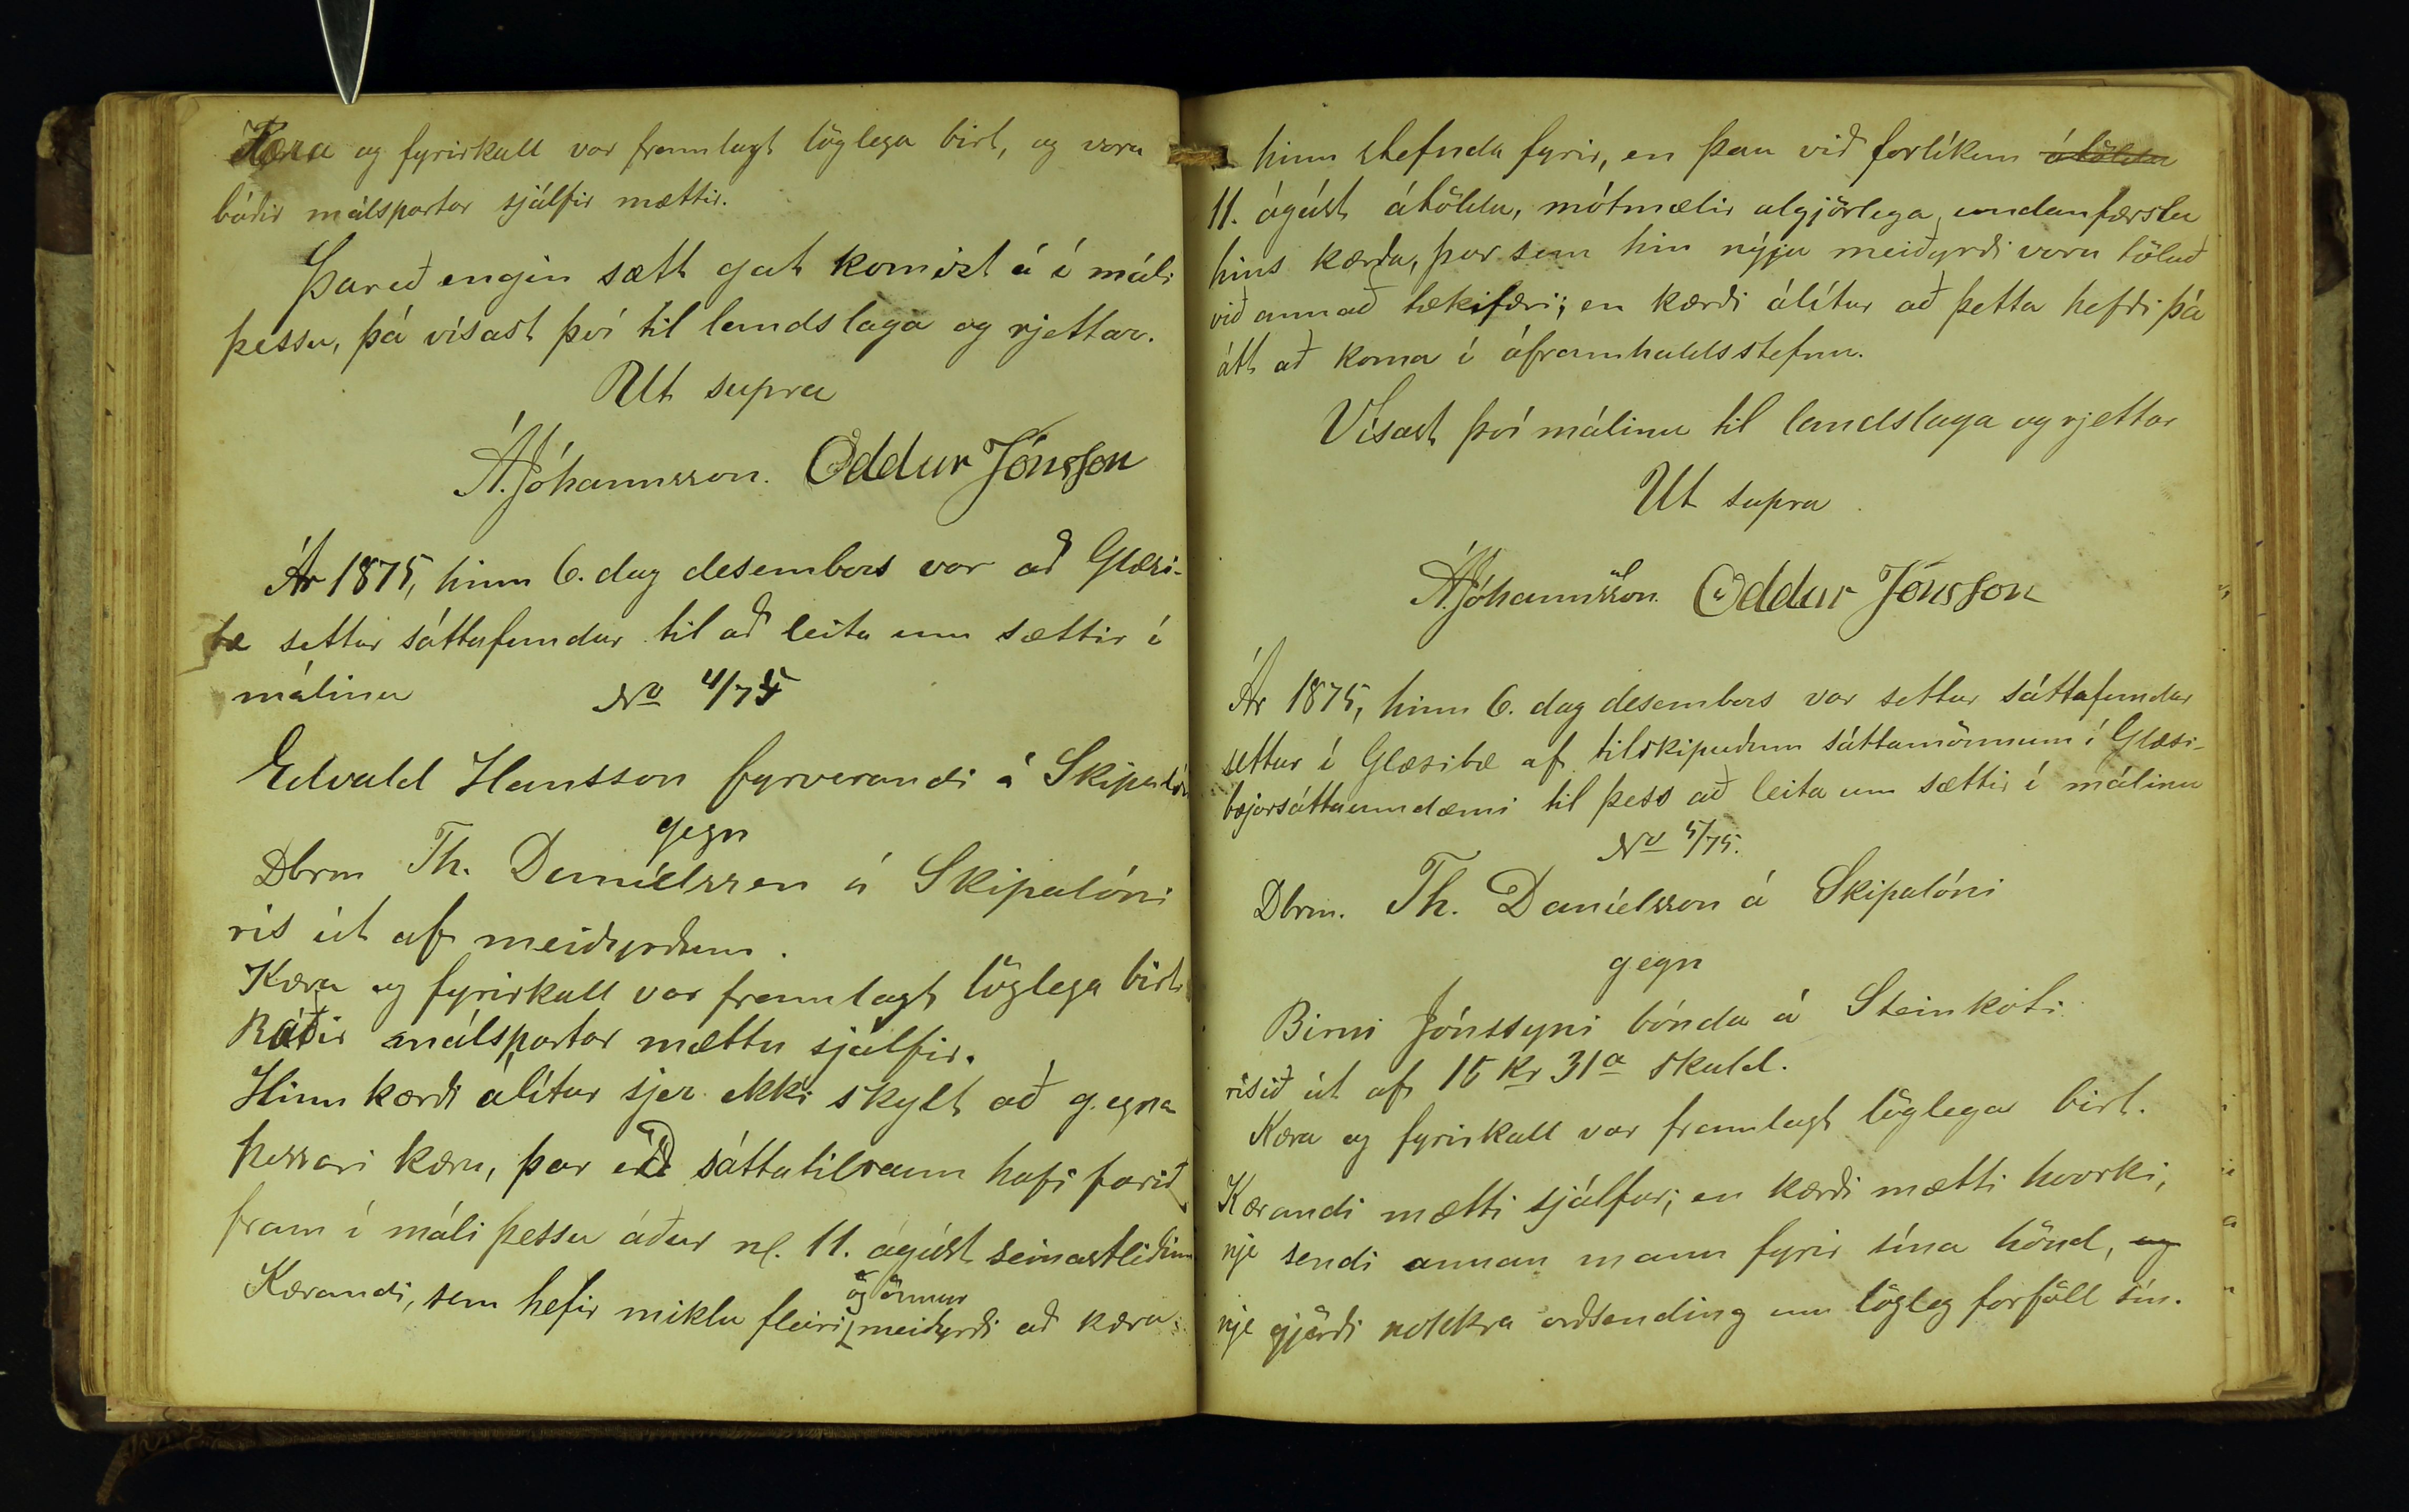 Kæra og fyrirkall var framlagt löglega birt, og voru
báðir málspartar sjálfir mættir.
Þareð engin sætt gat komizt á í máli
þessu, þá vísast því til landslaga og rjettar.
Ut supra
Á. Jóhannsson. Oddur Jónsson
Ár 1875, hinn 6. dag desembers var að Glæsi-
bæ settur sáttafundur til að leita um sættir í
málinu No 4/75
Edvald Hansson fyrverandi á Skipalóni
gegn
Dbrm Th. Daníelssen á Skipalóni
ris út af meiðyrðum.
Kæra og fyrirkall var framlagt löglega birt
Báðir málspartar mættu sjálfir.
Hinn kærði álítur sjer ekki skylt að gegna
þessari kæru, þar eð sáttatilraun hafi farið
fram í máli þessu áður nl. 11. ágúst seinastliðinn
og önnur
Kærandi, sem hefir miklu fleiri meiðyrði að kæra
hinn stefnda fyrir, en þau við forlíkun átöldu
11. ágúst átöldu, mótmælir algjörlega undanfærslu
hins kærða, þar sem hin nýju meiðyrði voru töluð
við annað tækifæri; en kærði álítur að þetta hefði þá
átt að koma í áframhaldsstefnu.
Vísast því málinu til landslaga og rjettar
Ut supra
Á. Jóhannsson. Oddur Jónsson
Ár 1875, hinn 6. dag desembers var settur sáttafundur
settur í Glæsibæ af tilskipuðum sáttamönnum í Glæsi-
bæjarsáttaumdæmi til þess að leita um sættir í málinu
No 5/75.
Dbrm. Th. Daníelsson á Skipalóni
gegn
Birni Jónssyni bónda á Steinkoti
risið út af 15 Kr 31a skuld.
Kæra og fyrirkall var framlagt löglega birt.
Kærandi mætti sjálfur; en kærði mætti hvorki,
nje sendi annan mann fyrir sína hönd, og
nje gjörði nokkra orðsending um lögleg forföll sín.